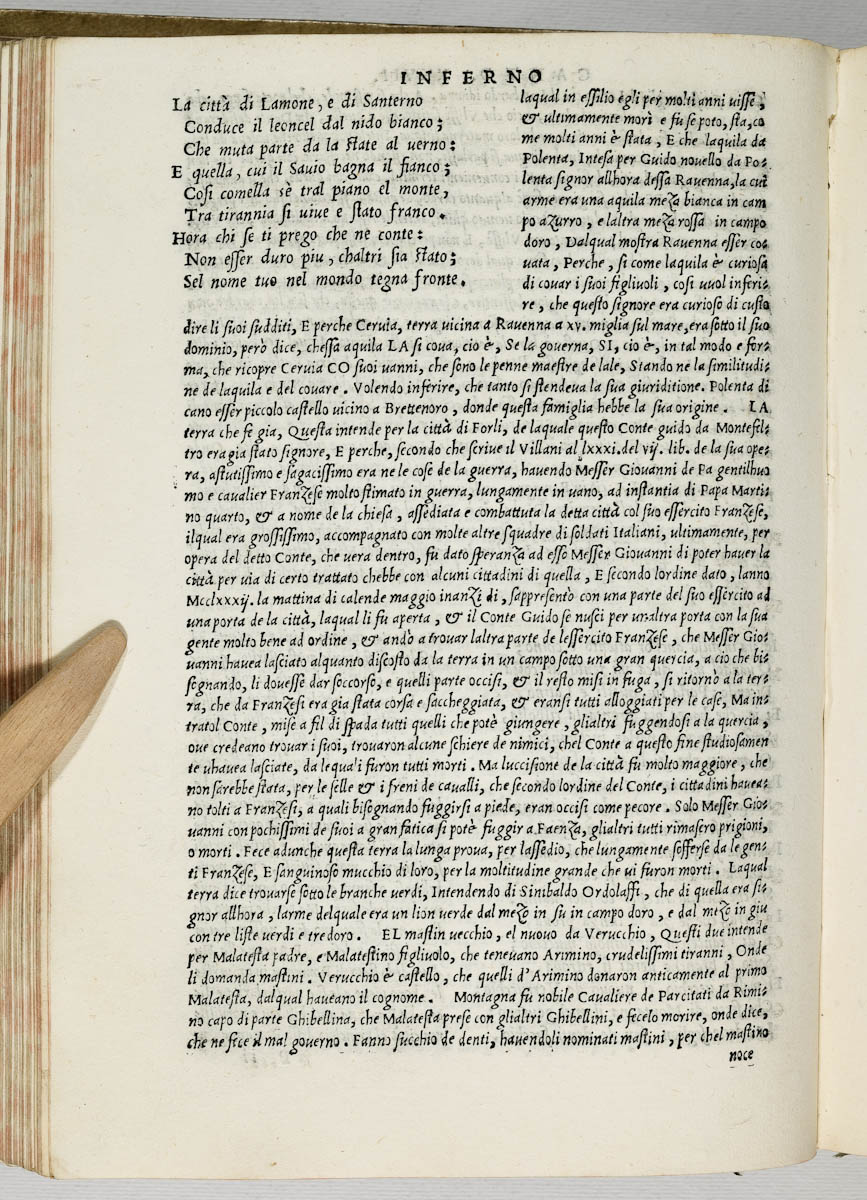 INFERNO
La città di Lamone, e di Santerno
Conduce il leoncel dal nido bianco;
Che muta parte da la state al uerno:
E quella, cui il Sauio bagna il fianco;
Cosi comella sè tral piano el monte,
Tra tirannia si uiue e stato franco.
Hora chi se ti prego che ne conte:
Non esser duro piu, chaltri sia stato;
Sel nome tuo nel mondo tegna fronte.
laqual in essilio egli per molti anni uisse,
& ultimamente morì e fu sepoto, sta, co
me molti anni è stata, E che laquila da
Polenta, Intesa per Guido nouello da Po-
lenta signor allhora dessa Rauenna, la cui
arme era una aquila meza bianca in cam
po azurro, e laltra meza rossa in campo
doro, Dalqual mostra Rauenna esser co-
uata, Perche, si come laquila è curiosa
di couar i suoi figliuoli, cosi uuol inferi-
re, che questo signore era curioso di custo
dire li suoi sudditi, E perche Ceruia, terra uicina a Rauenna a xv. miglia sul mare, era sotto il suo
dominio, però dice, chessa aquila LA si coua, cio è, Se la gouerna, SI, cio è, in tal modo e for-
ma, che ricopre Ceruia CO suoi uanni, che sono le penne maestre de lale, Stando ne la similitudi-
ne de laquila e del couare. Volendo inferire, che tanto si stendeua la sua giuriditione. Polenta di
cano esser piccolo castello uicino a Brettenoro, donde questa famiglia hebbe la sua origine. LA
terra che fe gia, Questa intende per la città di Forlì, de laquale questo Conte guido da Montefel-
tro era gia stato signore, E perche, secondo che scriue il Villani al lxxxi. del vij. lib. de la sua ope-
ra, astutissimo e sagacissimo era ne le cose de la guerra, hauendo Messer Giouanni de Pa gentilhuo
mo e caualier Franzese molto stimato in guerra, lungamente in uano, ad instantia di Papa Marti-
no quarto, & a nome de la chiesa, assediata e combattuta la detta città col suo essercito Franzese,
ilqual era grossissimo, accompagnato con molte altre squadre di soldati Italiani, ultimamente, per
opera del detto Conte, che uera dentro, fu dato speranza ad esso Messer Giouanni di poter hauer la
città per uia di certo trattato chebbe con alcuni cittadini di quella, E secondo lordine dato, lanno
Mcclxxxij. la mattina di calende maggio inanzi dì, sappresentò con una parte del suo essercito ad
una porta de la città, laqual li fu aperta, & il Conte Guido se nuscì per unaltra porta con la sua
gente molto bene ad ordine, & andò a trouar laltra parte de lessercito Franzese, che Messer Gio-
uanni hauea lasciato alquanto discosto da la terra in un campo sotto una gran quercia, a ciò che bi-
sognando, li douesse dar soccorso, e quelli parte occisi, & il resto misi in fuga, si ritornò a la ter-
ra, che da Franzesi era gia stata corsa e saccheggiata, & eransi tutti alloggiati per le case, Ma in
tratol Conte, mise a fil di spada tutti quelli che potè giungere, glialtri fuggendosi a la quercia,
oue credeano trouar i suoi, trouaron alcune schiere de nimici, chel Conte a questo fine studiosamen
te uhauea lasciate, da lequali furon tutti morti. Ma luccisione de la città fu molto maggiore, che
non sarebbe stata, per le selle & i freni de caualli, che secondo lordine del Conte, i cittadini hauea-
no tolti a Franzesi, a quali bisognando fuggirsi a piede, eran occisi come pecore. Solo Messer Gio-
uanni con pochissimi de suoi a gran fatica si potè fuggir a Faenza, glialtri tutti rimasero prigioni,
o morti. Fece adunche questa terra la lunga proua, per lassedio, che lungamente sofferse da le gen-
ti Franzese, E sanguinoso mucchio di loro, per la moltitudine grande che ui furon morti. Laqual
terra dice trouarse sotto le branche uerdi, Intendendo di Sinibaldo Ordolaffi, che di quella era si-
gnor allhora, larme delquale era un lion uerde dal mezo in su in campo doro, e dal mezo in giu
con tre liste uerdi e tre doro. EL mastin uecchio, el nuouo da Verucchio, Questi due intende
per Malatesta padre, e Malatestino figliuolo, che teneuano Arimino, crudelissimi tiranni, Onde
li domanda mastini. Verucchio è castello, che quelli d'Arimino donaron anticamente al primo
Malatesta, dalqual haueano il cognome. Montagna fu nobile Caualiere de Parcitati da Rimi-
no capo di parte Ghibellina, che Malatesta prese con glialtri Ghibellini, e fecelo morire, onde dice,
che ne fece il mal gouerno. Fanno succhio de denti, hauendoli nominati mastini, per chel mastino
noce